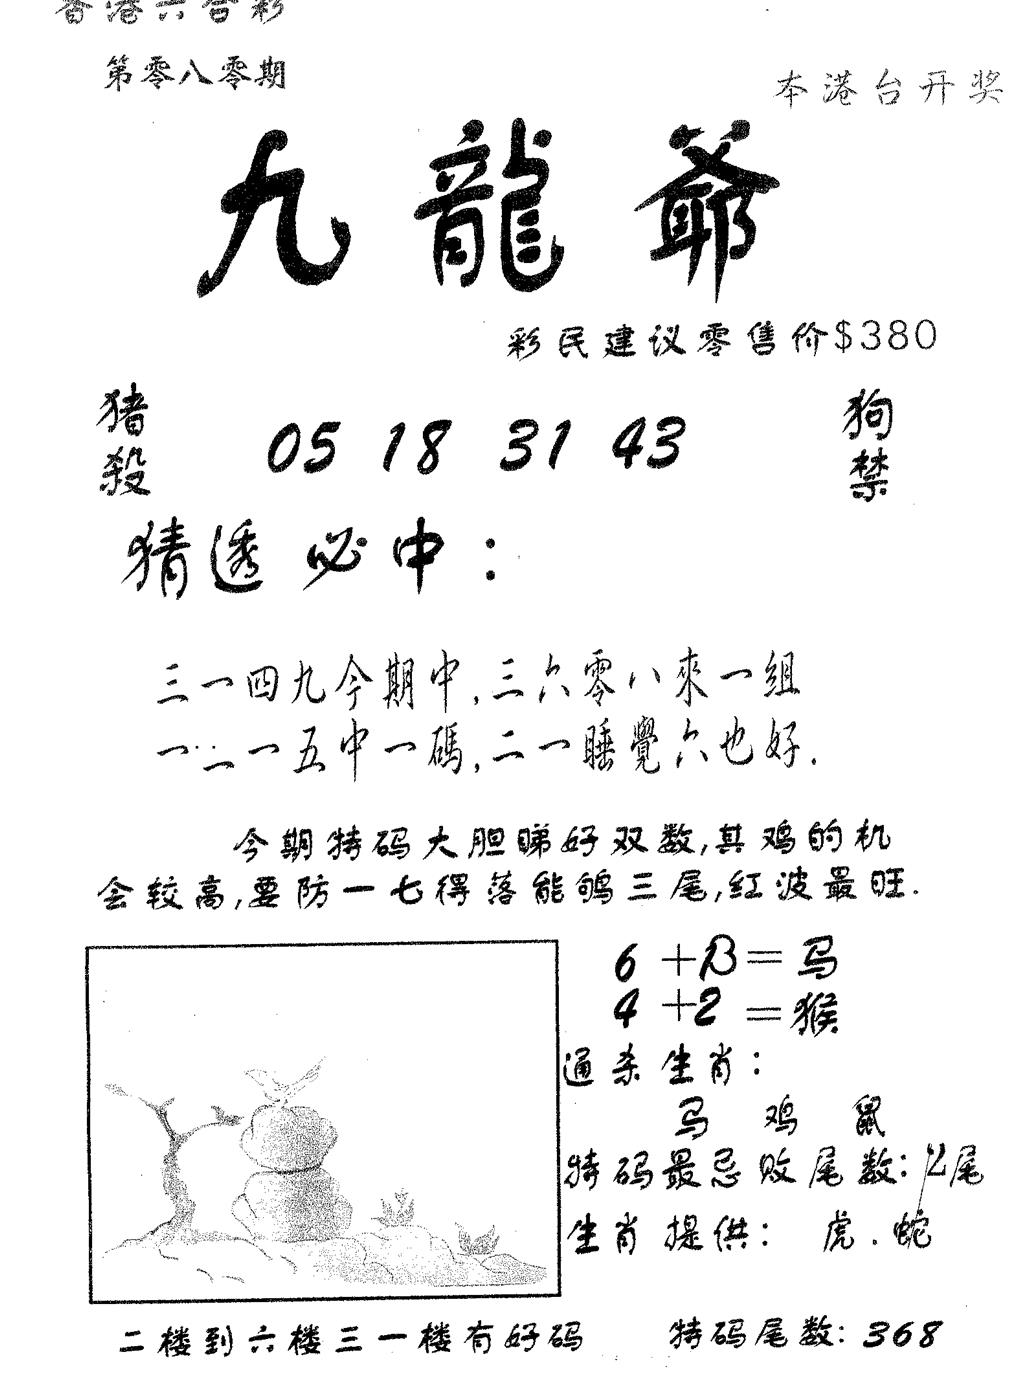 香港六合彩
第零八零期
本港台开奖
九龍爺
彩民建议零售价$380
猪殺
05 18 31 43
狗禁
猜透必中：
三一四九今期中,三六零八來一組
一二一五中一碼,二一睡覺六也好.
今期特码大胆睇好双数,其鸡的机
会较高,要防一七得落能鸲三尾,红波最旺.
6+13=马
4+2=猴
通杀生肖：
马 鸡 鼠
特码最忌败尾数：2尾
生肖提供： 虎.蛇
二楼到六楼三一楼有好码
特码尾数：368